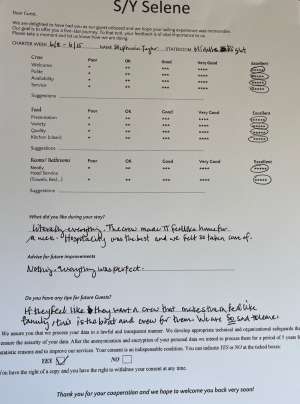 S/Y Selene
Dear Guest,
We are delighted to have had you as our guest onboard and we hope your sailing experience was memorable.
Our goal is to offer you a five-star journey. To that end, your feedback is of vital importance to us.
Please take a moment and let us know how we are doing.
CHARTER WEEK 6/8 - 6/15 NAME Stephanie Taylor STATEROOM Middle
Crew Poor OK Good Very Good Excellent
Welcome * ** *** **** *****
Polite * ** *** **** *****
Availability * ** *** **** *****
Service * ** *** **** *****
Suggestions
Food Poor OK Good Very Good Excellent
Presentation * ** *** **** *****
Variety * ** *** **** *****
Quality * ** *** **** *****
Kitchen (clean) * ** *** **** *****
Suggestions
Rooms/ Bathrooms Poor OK Good Very Good Excellent
Neatly * ** *** **** *****
Hotel Service
(Towels, Bed...) * ** *** **** *****
Suggestions
What did you like during your stay?
Literally everything. The crew made it feel like home for
a week. Hospitality was the best and we felt so taken care of.
Advice for future improvements
Nothing. Everything was perfect.
Do you have any tips for future Guests?
If they feel like they want a crew that makes them feel like
family, this is the boat and crew for them. We are so
We assure you that we process your data in a lawful and transparent manner. We develop appropriate technical and organizational safeguards
ensure the security of your data. After the anonymization and encryption of your personal data we intend to process them for a period of 5 years
statistic reasons and to improve our services. Your consent is an indispensable condition. You can indicate YES or NO at the ticked boxes:
YES NO
You have the right of a copy and you have the right to withdraw your consent at any time.
Thank you for your cooperation and we hope to welcome you back very soon!